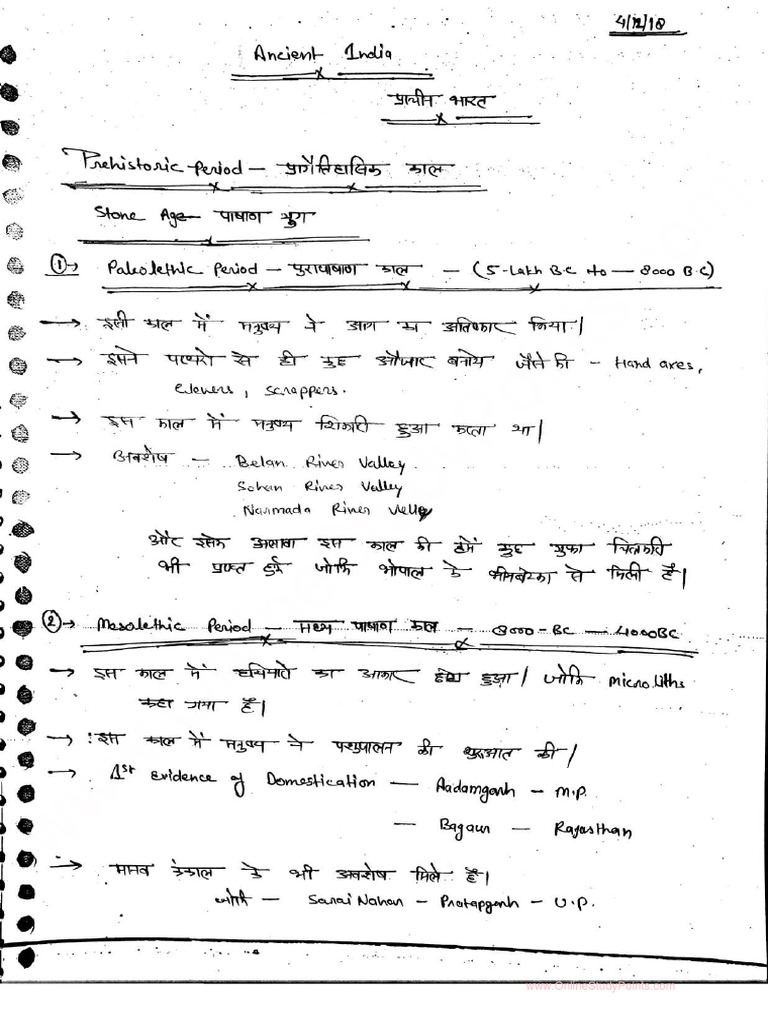 4/12/18
Ancient India
प्राचीन भारत
Prehistoric Period — प्रागैतिहासिक काल
Stone Age — पाषाण युग
① Paleolethic Period — पुरापाषाण काल — (5-Lakh B.C to — 8000 B.C)
→ इसी काल में मनुष्य ने आग का अविष्कार किया।
→ इसने पत्थरो से ही कुछ औजार बनाये जैसे की — Hand axes,
Clevers, scrappers.
→ इस काल में मनुष्य शिकारी हुआ करता था।
→ अवशेष — Belan River Valley
Sohan River Valley
Narmada River Velley
और इसके अलावा इस काल की हमें कुछ गुफा चित्रकारी
भी प्राप्त हुई जोकि भोपाल के भीमबेटका से मिली है।
② → Mesolethic Period — मध्य पाषाण काल — 8000-BC — 4000BC
→ इस काल में हथियारो का आकार छोटा हुआ। जोकि microliths
कहा गया है।
→ इस काल में मनुष्य ने पशुपालन की शुरुआत की।
→ 1st Evidence of Domestication — Aadamgarh — M.P.
— Bagaur — Rajasthan
→ मानव कंकाल के भी अवशेष मिले है।
जोकि — Sarai Nahar — Pratapgarh — U.P.
www.OnlineStudyPoints.com